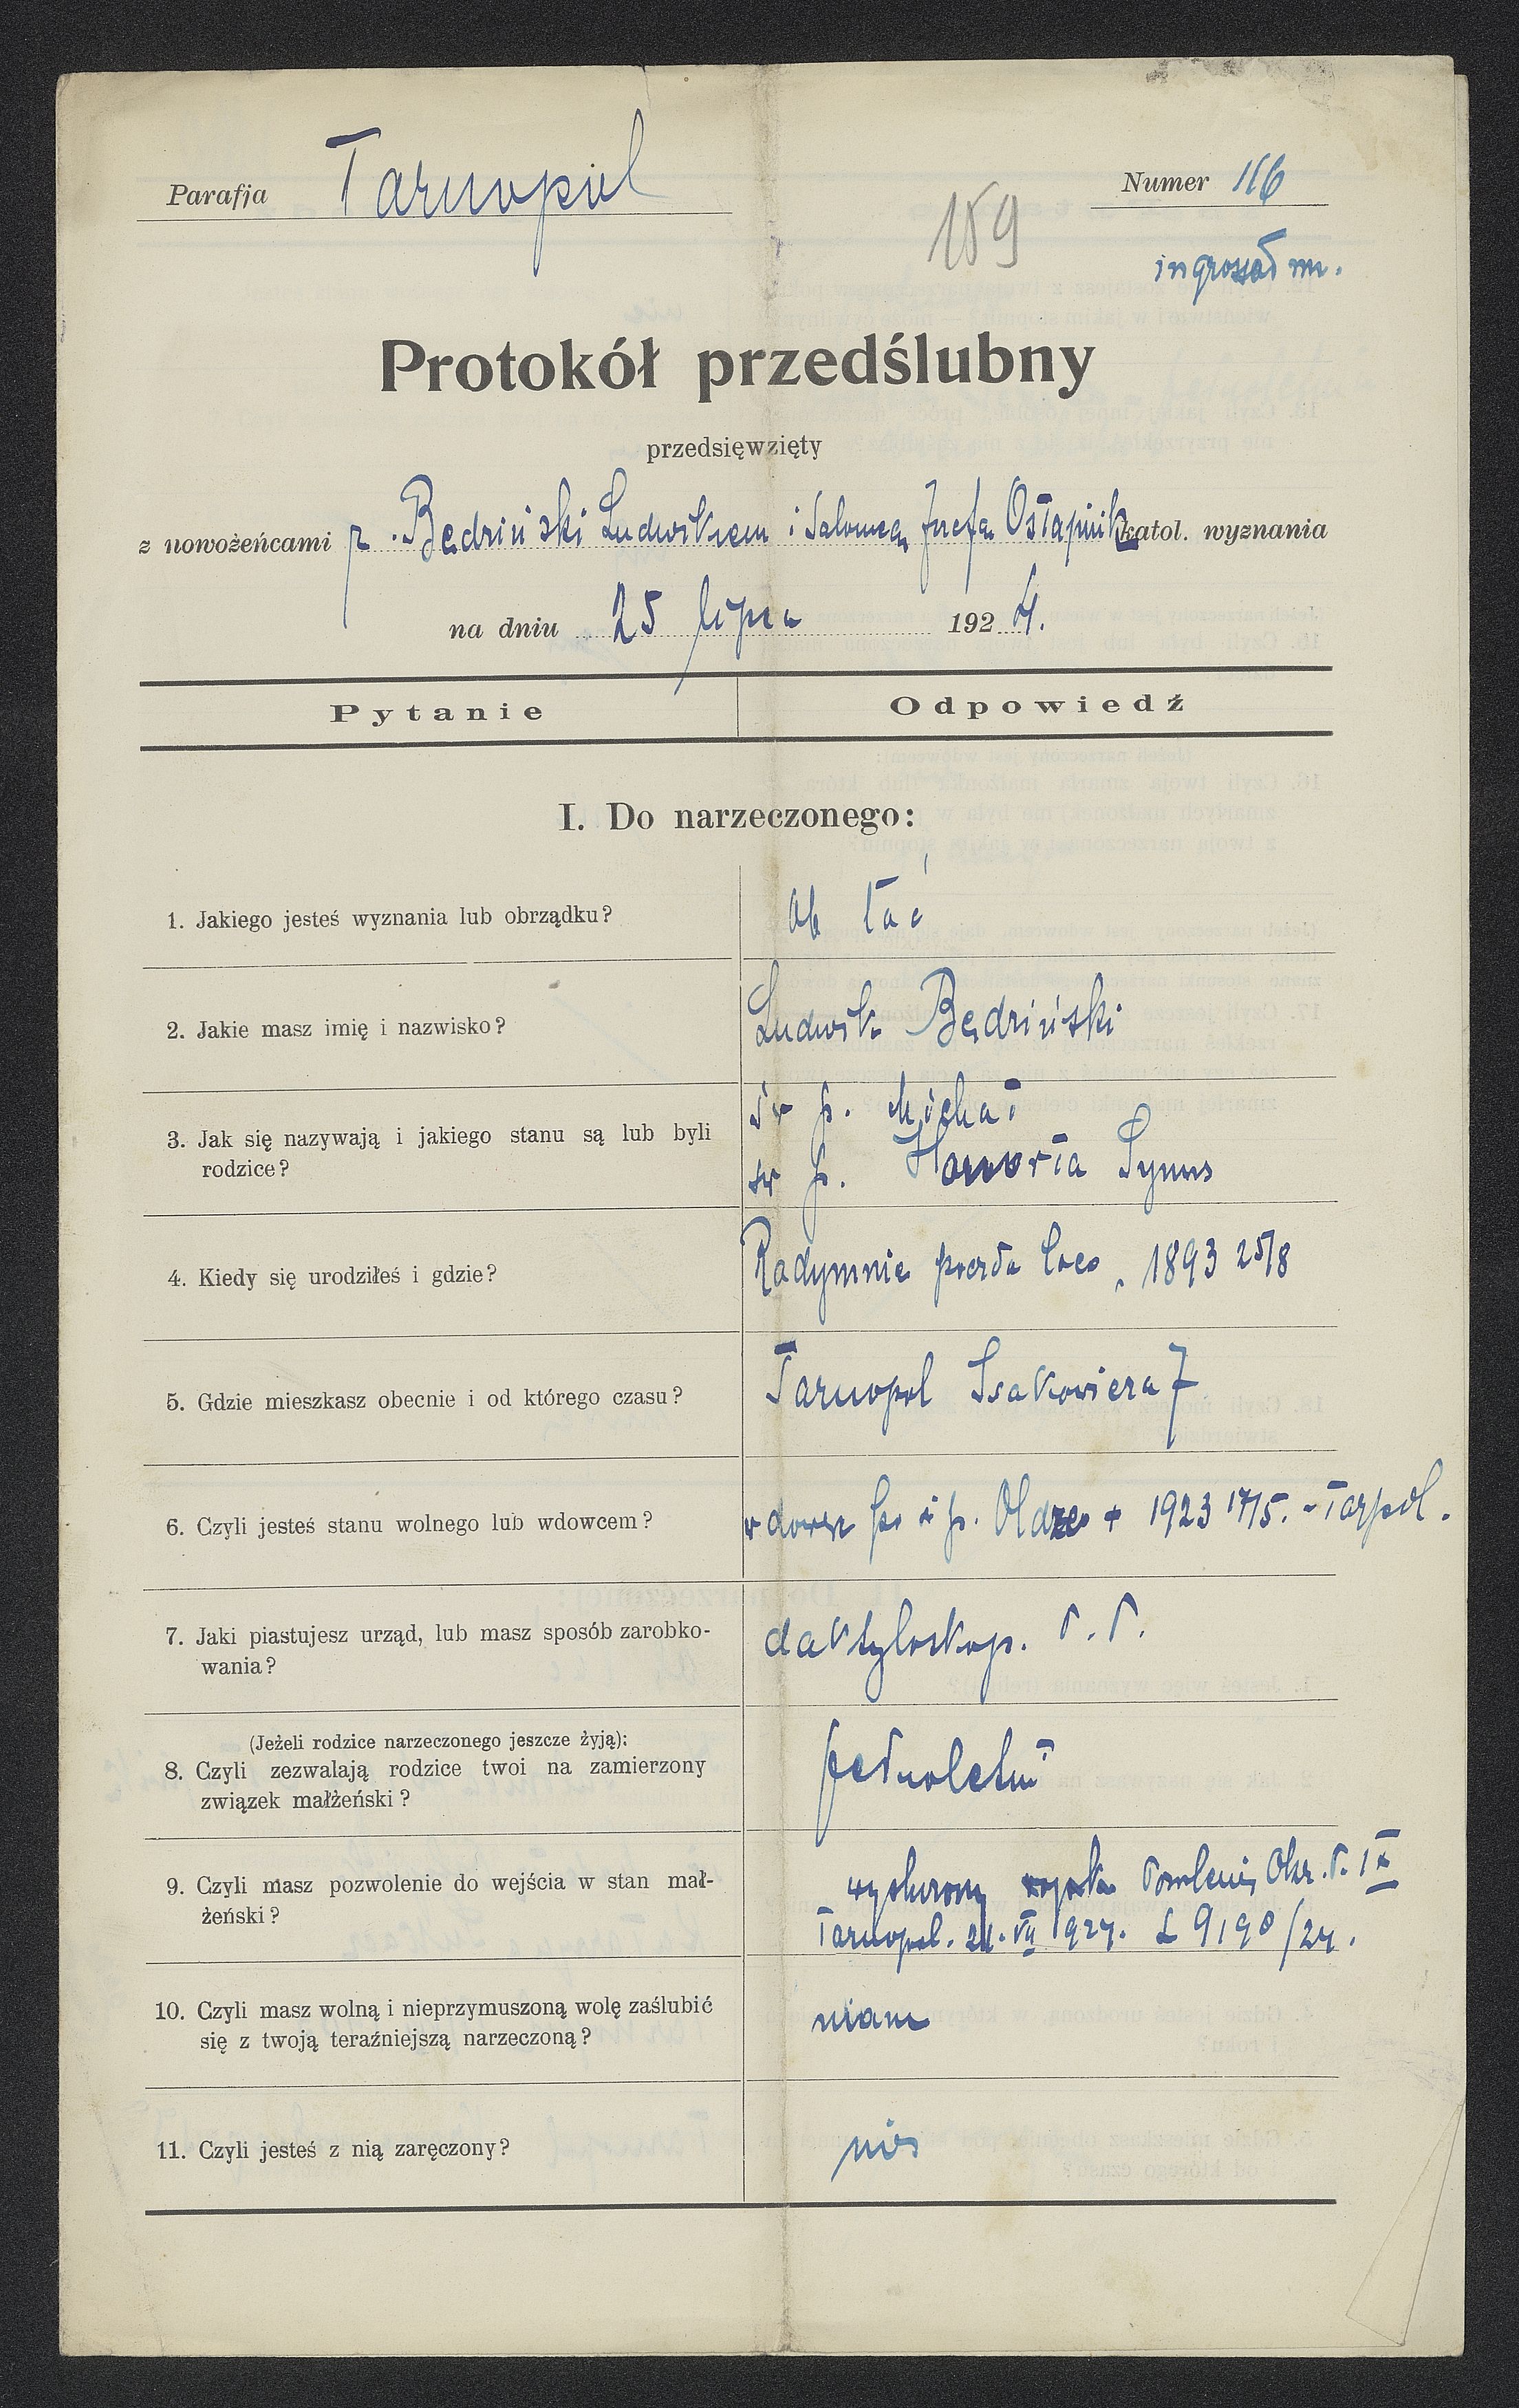 Parafja Tarnopol
Numer 116
159
ingrossat nr.
Protokół przedślubny
przedsięwzięty
z nowożeńcami p. Będziński Ludwikiem i Salomeą Józefą Ostapiuk katol. wyznania
na dniu 25 lipca 1924.
Pytanie Odpowiedź
I. Do narzeczonego:
1. Jakiego jesteś wyznania lub obrządku? ob łać
2. Jakie masz imię i nazwisko? Ludwik Będziński
3. Jak się nazywają i jakiego stanu są lub byli
rodzice?
św p. Michał
św p.
4. Kiedy się urodziłeś i gdzie? Radymnie loco, 1893 25/8
5. Gdzie mieszkasz obecnie i od którego czasu? Tarnopol Isakowicza 7
6. Czyli jesteś stanu wolnego lub wdowcem? wdowiec po ś p. Oldze + 1923 17/5. - Tarpol.
7. Jaki piastujesz urząd, lub masz sposób zarobko-
wania?
daktyloskop. P. P.
(Jeżeli rodzice narzeczonego jeszcze żyją):
8. Czyli zezwalają rodzice twoi na zamierzony
związek małżeński?
pełnoletni
9. Czyli masz pozwolenie do wejścia w stan mał-
żeński?
Okr. P. P.
Tarnopol. 24. VII 1924. L 9190/24.
10. Czyli masz wolną i nieprzymuszoną wolę zaślubić
się z twoją teraźniejszą narzeczoną?
mam
11. Czyli jesteś z nią zaręczony? nie